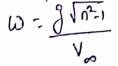 ω = g√(n²-1) / V∞